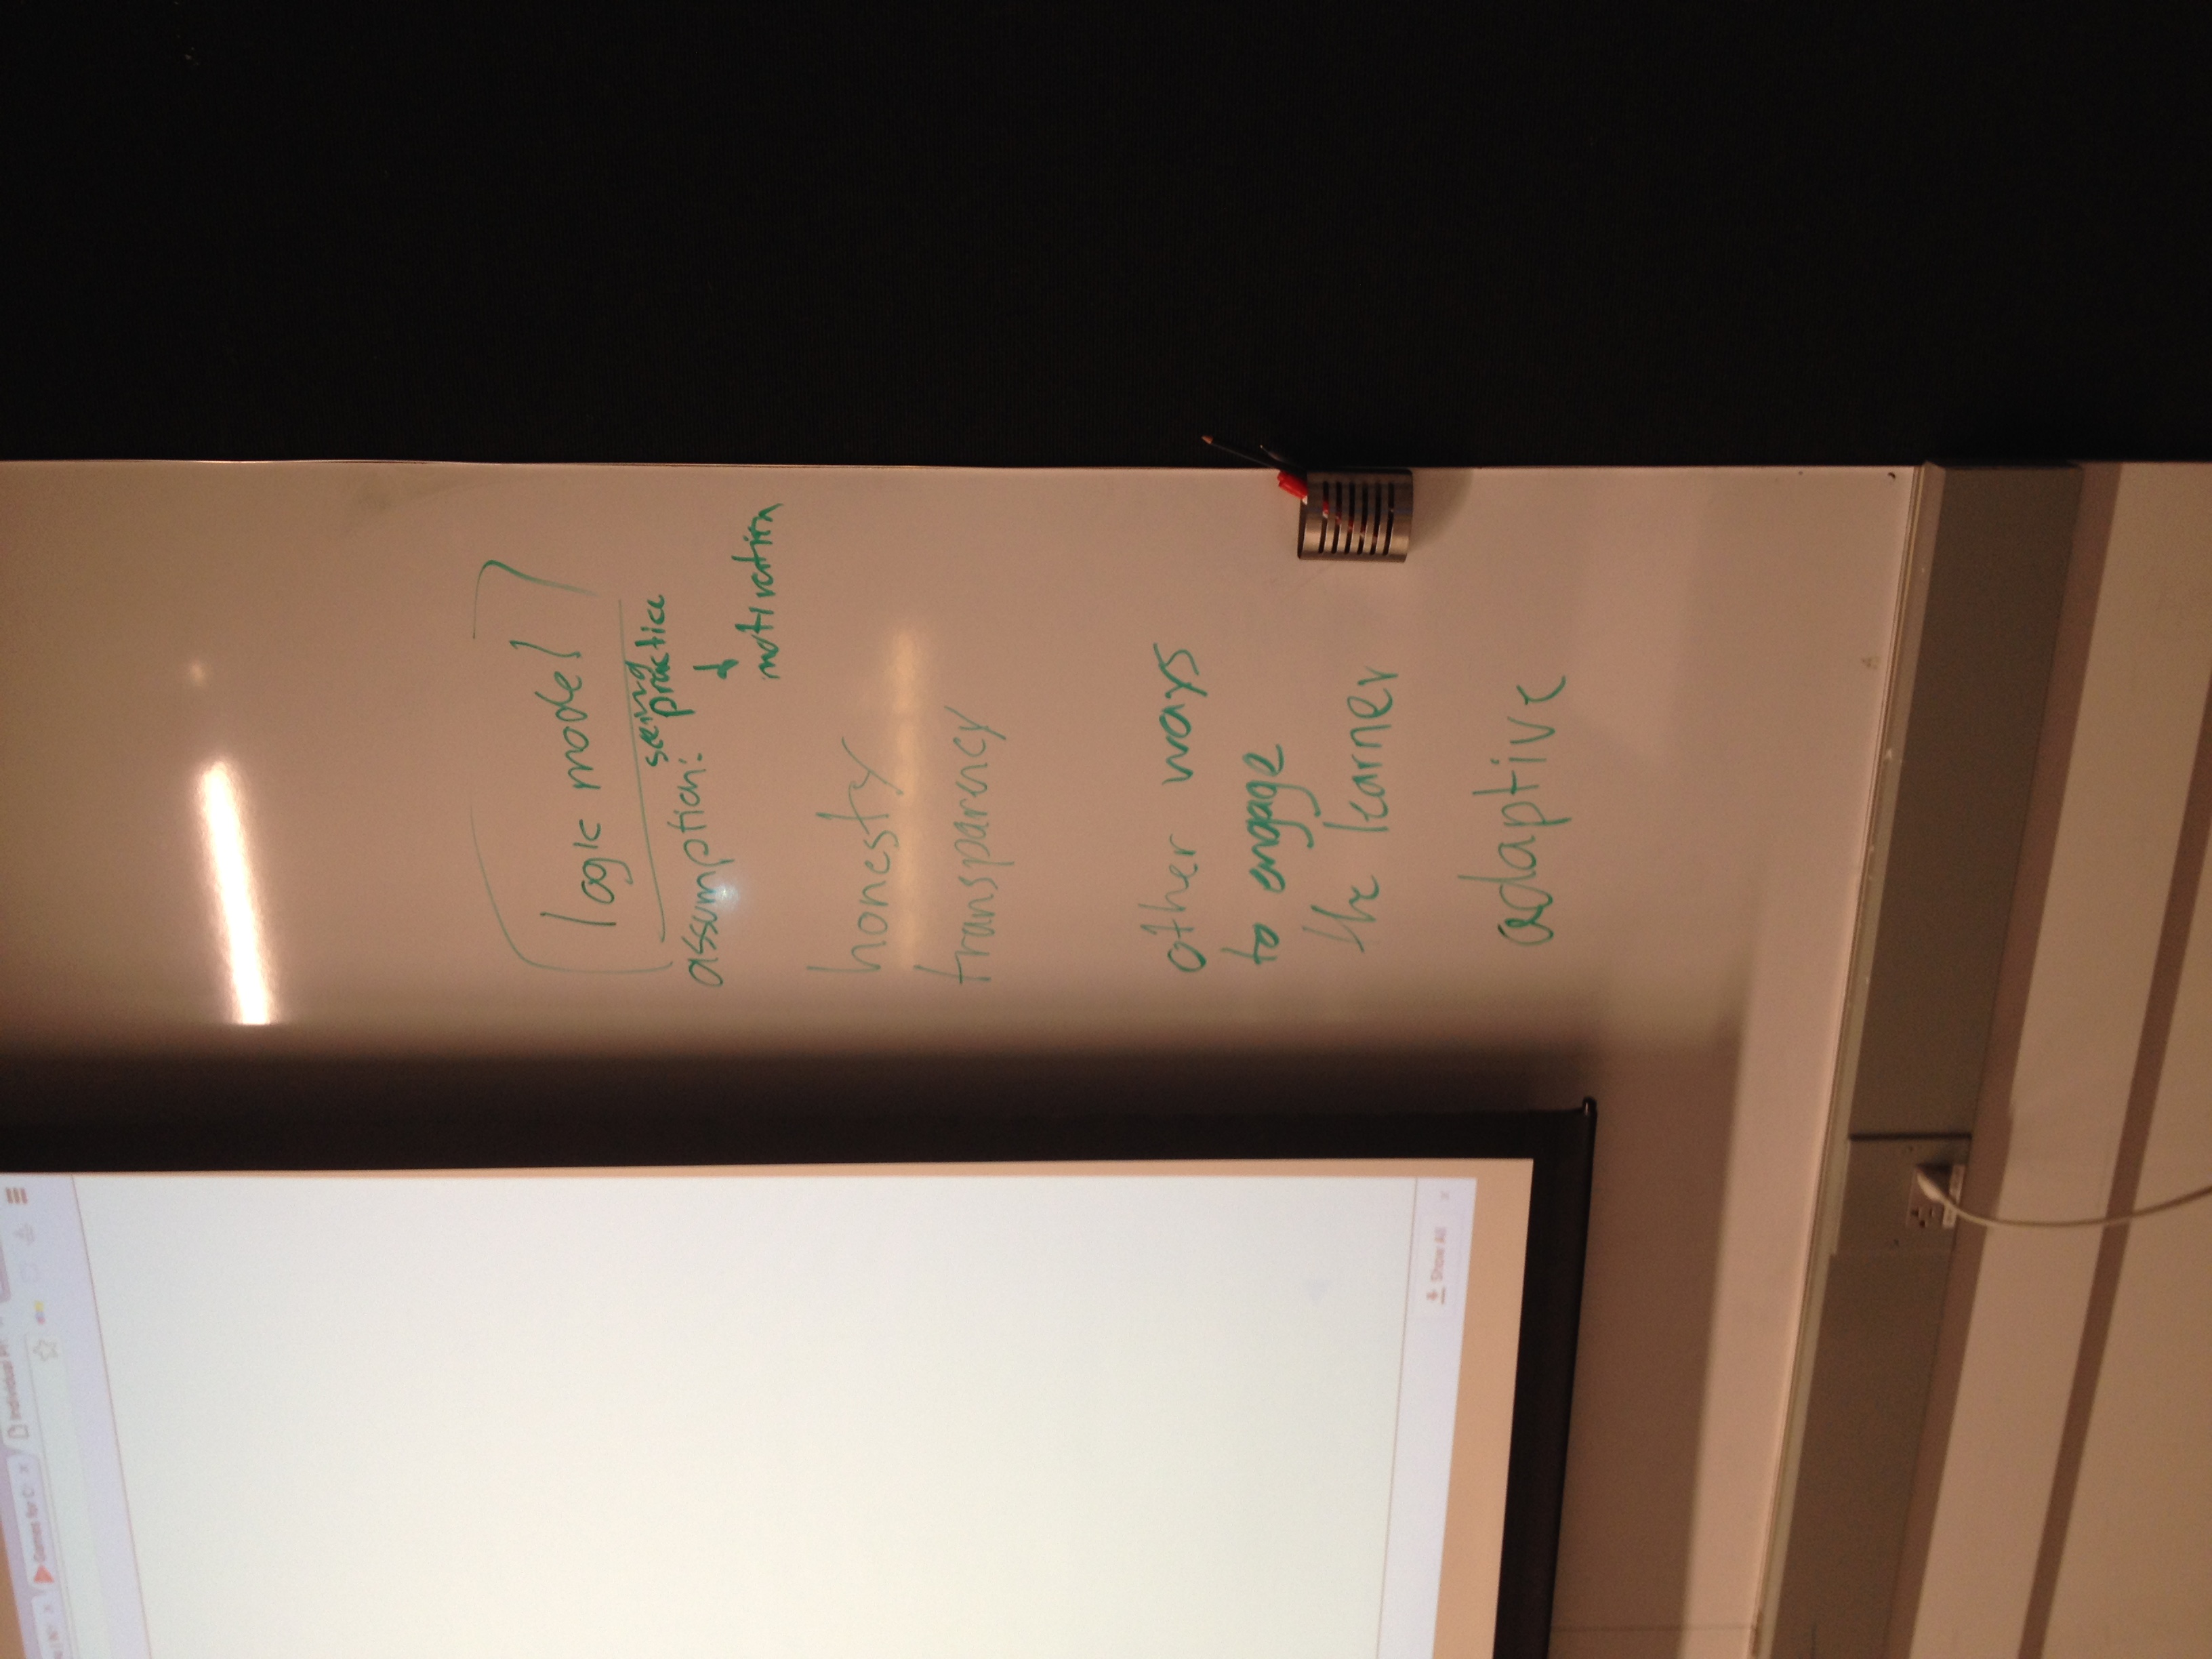 Games for C
Individual Pr
ebay
logic model
seeing
assumption: practice
motivation
honesty
transparency
other ways
to engage
the learner
adaptive
Show All